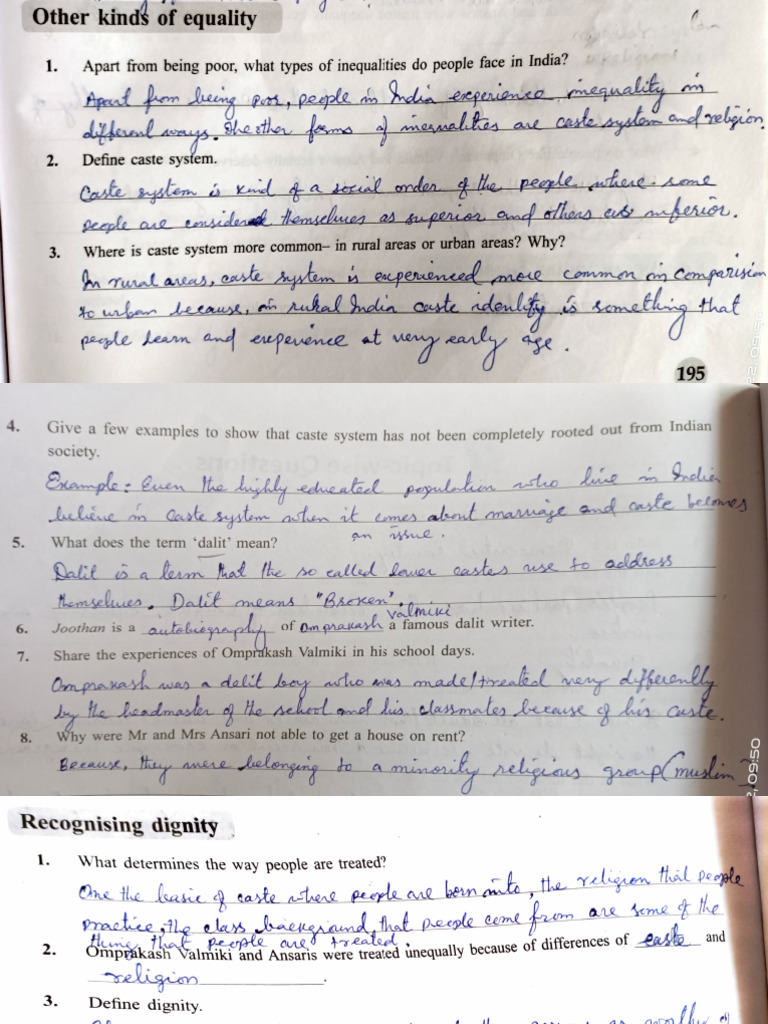 Other kinds of equality
1. Apart from being poor, what types of inequalities do people face in India?
Apart from being poor, people in India experience inequality in
different ways. The other forms of inequalities are caste system and religion.
2. Define caste system.
Caste system is kind of a social order of the people where some
people are considered themselves as superior and others as inferior.
3. Where is caste system more common– in rural areas or urban areas? Why?
In rural areas, caste system is experienced more common in comparision
to urban because, in rural India caste identity is something that
people learn and experience at very early age.
195
4. Give a few examples to show that caste system has not been completely rooted out from Indian
society.
Example: Even the highly educated population who live in India
believe in caste system when it comes about marriage and caste becomes
an issue.
5. What does the term ‘dalit’ mean?
Dalit is a term that the so called lower castes use to address
themselves. Dalit means "Broken".
6. Joothan is a autobiography of Omprakash Valmiki a famous dalit writer.
7. Share the experiences of Omprakash Valmiki in his school days.
Omprakash was a dalit boy who was made/treated very differently
by the headmaster of the school and his classmates because of his caste.
8. Why were Mr and Mrs Ansari not able to get a house on rent?
Because, they were belonging to a minority religious group (muslim)
09:50
Recognising dignity
1. What determines the way people are treated?
One the basic of caste where people are born into, the religion that people
practice, the class background that people come from are some of the
things that people are treated.
2. Omprakash Valmiki and Ansaris were treated unequally because of differences of caste and
religion.
3. Define dignity.